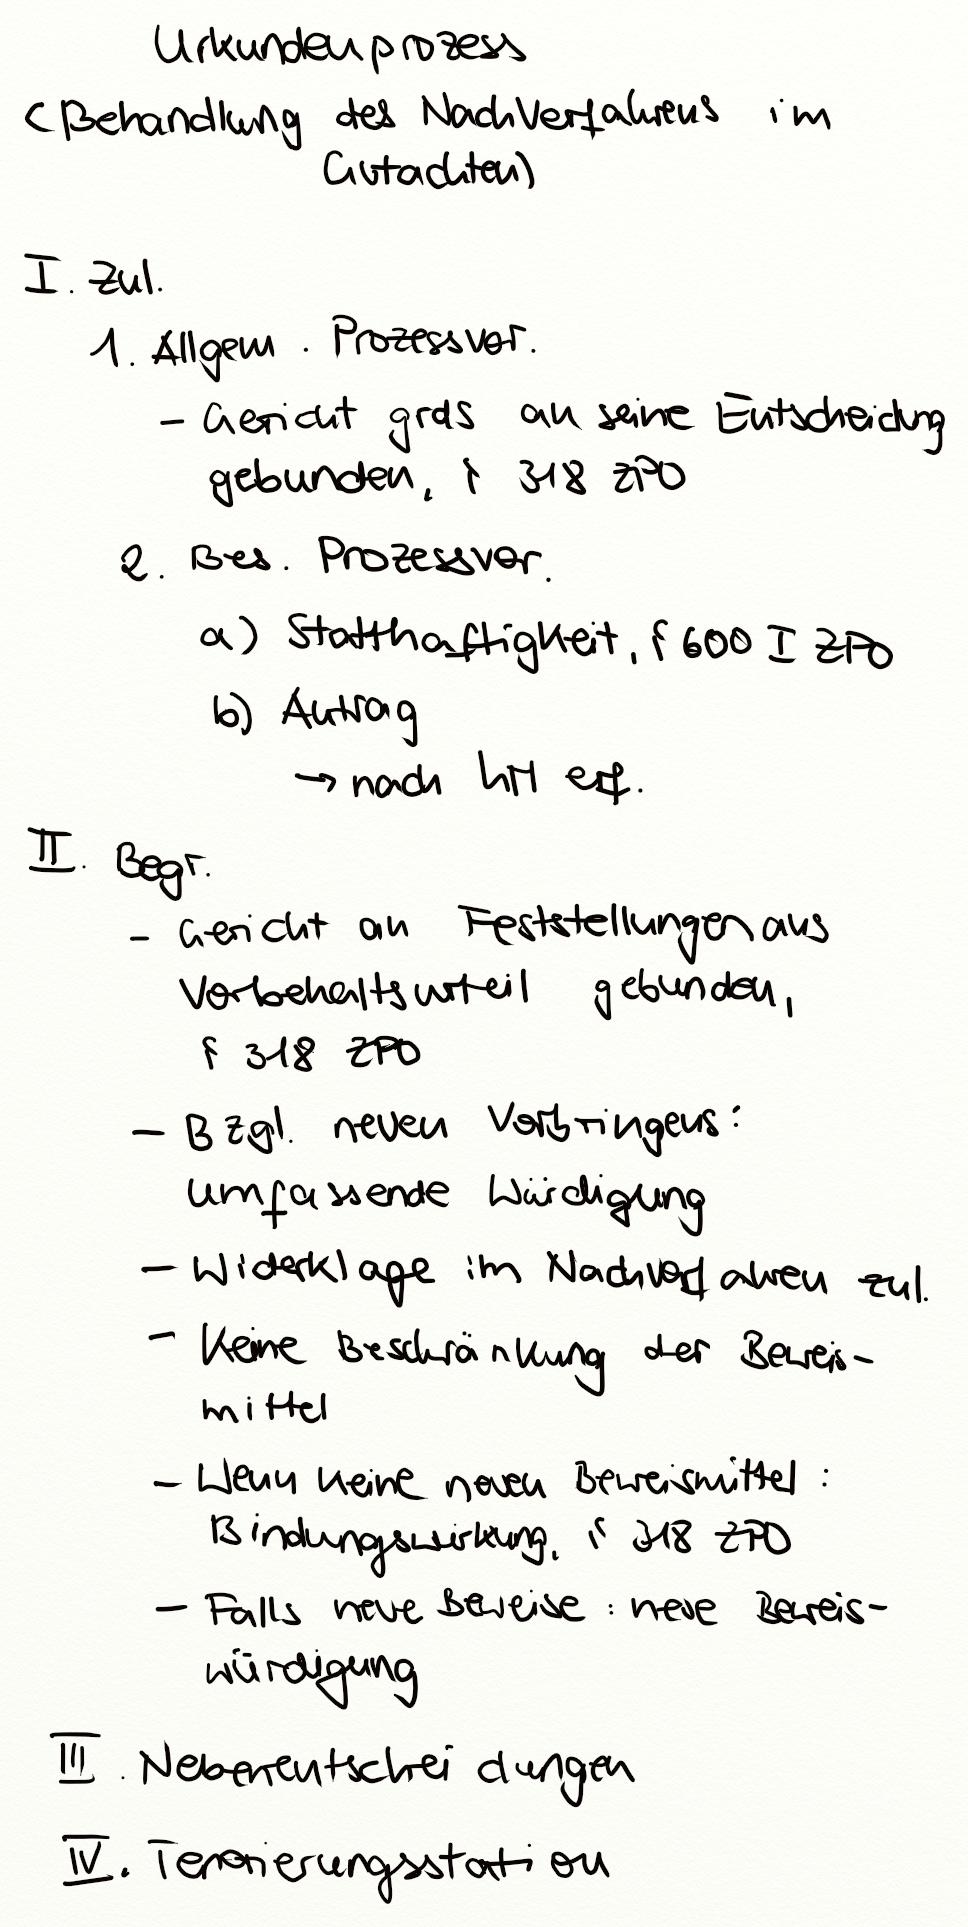 Urkundenprozess
(Behandlung des Nachverfahrens im
Gutachten)
I. Zul.
1. Allgem. Prozessvor.
- Gericht grds an seine Entscheidung
gebunden, § 318 ZPO
2. Bes. Prozessvor.
a) Statthaftigkeit, § 600 I ZPO
b) Antrag
→ nach hM erf.
II. Begr.
- Gericht an Feststellungen aus
Vorbehaltsurteil gebunden,
§ 318 ZPO
- Bzgl. neuen Vorbringens:
umfassende Würdigung
- Widerklage im Nachverfahren zul.
- Keine Beschränkung der Beweis-
mittel
- Wenn keine neuen Beweismittel:
Bindungswirkung, § 318 ZPO
- Falls neue Beweise: neue Beweis-
würdigung
III. Nebenentscheidungen
IV. Tenorierungsstation